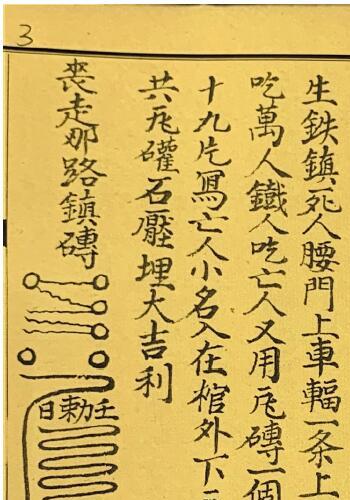 3
生鉄鎮死人腰門上車輻一条上
吃萬人鐵人吃亡人又用瓦磚一個
十九片寫亡人小名入在棺外下
共瓦礶石壓埋大吉利
喪走那路鎮磚
日勅壬